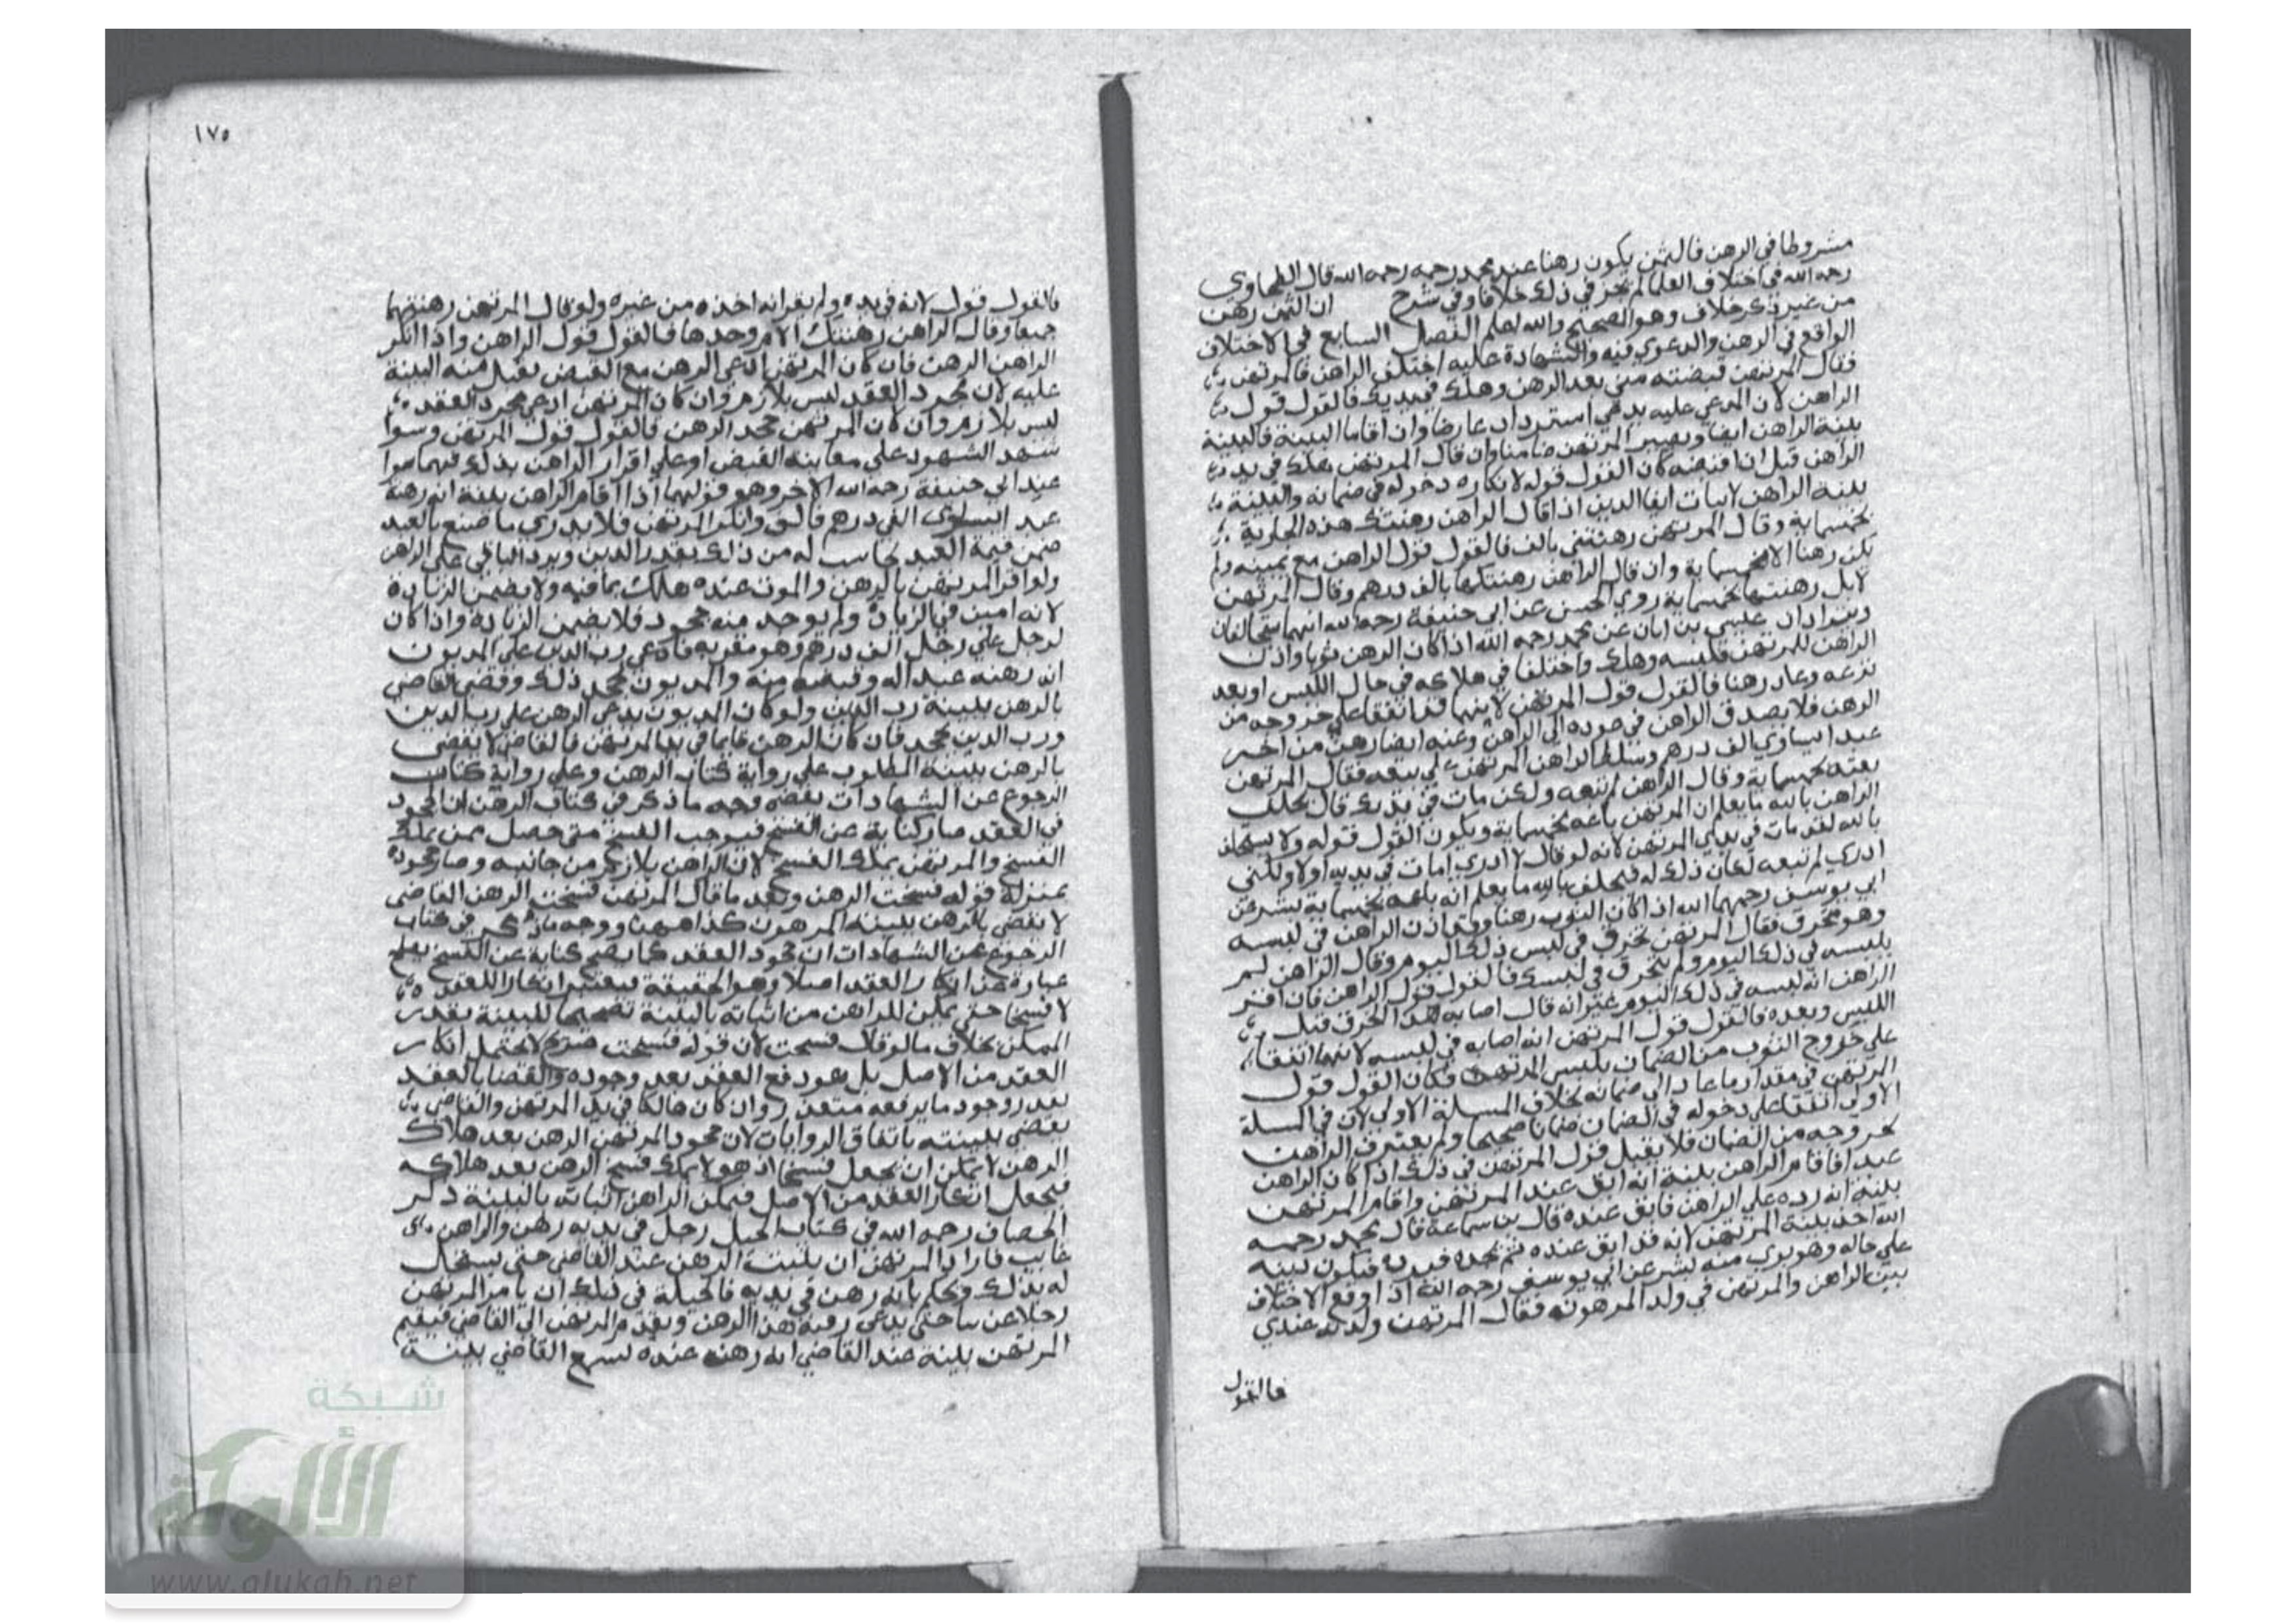 مشروطا في الرهن فالثمن يكون رهنا عند محمد رحمه رحمه الله قال الطحاوي
رحمه الله في اختلاف العلما لم نجز في ذلك خلافا وفي شرح ان الثمن رهن
من غير ذكر خلاف وهو الصحيح والله اعلم الفصل السابع في الاختلاف
الواقع في الرهن والدعوي فيه والشهادة عليه اختلف الراهن فالمرتهن
فقال المرتهن قبضته مني بعد الرهن وهلك في يديك فالقول قول
الراهن لان المدعي عليه يدعي استرداد عارضا وان اقاما البينة فالبينة
بينة الراهن ايضا ويصير المرتهن ضامنا وان قال المرتهن هلك في يد
الراهن قبل ان اقبضه كان القول قوله لانكاره دخوله في ضمانه والبينة
بينة الراهن لاثبات ايفا الدين اذا قال الراهن رهنتك هذه الجارية
بخمسماية وقال المرتهن رهنتني بالف فالقول قول الراهن مع يمينه ولم
تكن رهنا الا بخمسماية وان قال الراهن رهنتكها بالف درهم وقال المرتهن
لا بل رهنتها بخمسماية روي الحسن عن ابي حنيفة رحمه الله انهما يتحالفان
ويترادان عيسي بن ابان عن محمد رحمه الله اذا كان الرهن ثوبا واذن
الراهن للمرتهن فلبسه وهلك واختلفا في هلاكه في حال اللبس او بعد
نزعه وعاد رهنا فالقول قول المرتهن لانهما قد اتفقا علي خروجه من
الرهن فلا يصدق الراهن في عوده الي الراهن وعنه ايضا رهن من اخر
عبدا يساوي الف درهم وسلط الراهن المرتهن علي بيعه فقال المرتهن
بعته بخمسماية وقال الراهن لم تبعه ولكن مات في يديك قال يحلف
الراهن بالله ما يعلم ان المرتهن باعه بخمسماية ويكون القول قوله ولا يستحلف
بالله لقد مات في يدي المرتهن لانه لو قال لا ادري امات في يديه اولا ولكني
ادري لم تبعه لكان ذلك له فيحلف بالله ما يعلم انه باعه بخمسماية بشر عن
ابي يوسف رحمهما الله اذا كان الثوب رهنا وقد اذن الراهن في لبسه
وهو متخرق فقال المرتهن تخرق في لبس ذلك اليوم وقال الراهن لم
يلبسه في ذلك اليوم ولم يتخرق في لبسك فالقول قول الراهن فان اقر
الراهن انه لبسه في ذلك اليوم غير انه قال اصابه هذا الخرق قبل
اللبس وبعده فالقول قول المرتهن انه اصابه في لبسه لانهما اتفقا
علي خروج الثوب من الضمان بلبس المرتهن فكان القول قول
المرتهن في مقدار ما عاد الي ضمانه بخلاف المسلة الاولي لان في المسلة
الاولي اتفقا علي دخوله في الضمان ضمانا صحيحا ولم يعترف الراهن
بخروجه من الضمان فلا يقبل قول المرتهن في ذلك اذا كان الراهن
عبدا فاقام الراهن بينة انه ابق عند المرتهن واقام المرتهن
بينة انه رده علي الراهن فابق عنده قال بن سماعة قال محمد رحمه
الله اخذ بينة المرتهن لانه قد ابق عنده ثم يجده فيرده فيكون لبينه
علي حاله وهو بري منه بشر عن ابي يوسف رحمه الله اذا وقع الاختلاف
بين الراهن والمرتهن في ولد المرهونه فقال المرتهن ولدته عندي
فالقول
١٧٥
فالقول قول لانه في يده ولم يقرانه اخذه من غيره ولو قال المرتهن رهنتهما
جميعا وقال الراهن رهنتك الام وحدها فالقول قول الراهن واذا انكر
الراهن الرهن فان كان المرتهن ادعي الرهن مع القبض يقبل منه البينة
عليه لان مجرد العقد ليس بلازم وان كان المرتهن ادعي مجرد العقد
ليس بلازم وان كان المرتهن جحد الرهن فالقول قول المرتهن وسوا
شهد الشهود علي معاينة القبض او علي اقرار الراهن بذلك فيهما سوا
عند ابي حنيفة رحمه الله الاخر وهو قولهما اذا اقام الراهن بينة انه رهنه
عبد ايساوي الفي درهم فالق وانكر المرتهن فلا يدري ما صنع بالعبد
ضمن قيمة العبد يحاسب له من ذلك بقدر الدين ويرد الباقي علي الراهن
ولو اقر المرتهن بالرهن والموت عنده هلك بما فيه ولا يضمن الزيادة
لانه امين في الزيادة ولم يوجد منه جحود فلا يضمن الزيادة واذا كان
لرجل علي رجل الف درهم وهو مقر به فادعي رب الدين علي المديون
انه رهنه عبدا له وقبضه منه والمديون يجحد ذلك وقضي القاضي
بالرهن ببينة رب الدين ولو كان المديون يدعي الرهن علي رب الدين
ورب الدين يجحد فان كان الرهن قايما في يد المرتهن فالقاضي لا يقضي
بالرهن ببينة المطلوب علي رواية كتاب الرهن وعلي رواية كتاب
الرجوع عن الشهادات يقضه وجه ما ذكر في كتاب الرهن ان الجحود
في العقد صار كناية عن الفسخ فيوجب الفسخ متي حصل ممن يملك
الفسخ والمرتهن يملك الفسخ لان الراهن بلازم من جانبه وصار جحوده
بمنزلة قوله فسخت الرهن وبعد ما قال المرتهن فسخت الرهن القاضي
لا يقضي بالرهن ببينة المرهون كذا ههنا ووجه ما ذكر في كتاب
الرجوع عن الشهادات ان جحود العقد كما يصح كناية عن الفسخ يصلح
عبارة عن انكار العقد اصلا وهو الحقيقة فيعتبر انكارا للعقد
لا فسخا حتي يمكن للراهن من اثباته بالبينة تصحيحا للبينة بقدر
الممكن بخلاف ما لو قال فسخت لان قوله فسخت صريح لا يحتمل انكار
العقد من الاصل بل هو رفع العقد بعد وجوده والقضا بالعقد
بعد وجود ما يرفعه متعذر وان كان هالكا في يد المرتهن والقاضي
يقضي ببينته باتفاق الروايات لان جحود المرتهن الرهن بعد هلاك
الرهن لا يمكن ان يجعل فسخا اذ هو لا يملك فسخ الرهن بعد هلاكه
فيجعل انكار العقد من الاصل فيمكن الراهن اثباته بالبينة ذكر
الخصاف رحمه الله في كتاب الحيل رجل في يديه رهن والراهن
غايب فاراد المرتهن ان يثبت الرهن عند القاضي حتي يسجل
له بذلك ويحكم بانه رهن في يديه فالحيلة في ذلك ان يامر المرتهن
رجلا حتي يدعي رقبة هذا الرهن ويقدم المرتهن الي القاضي فيقيم
المرتهن بينة عند القاضي انه رهنه عنده ليسمع القاضي بينة
شبكة
الألوكة
www.alukah.net